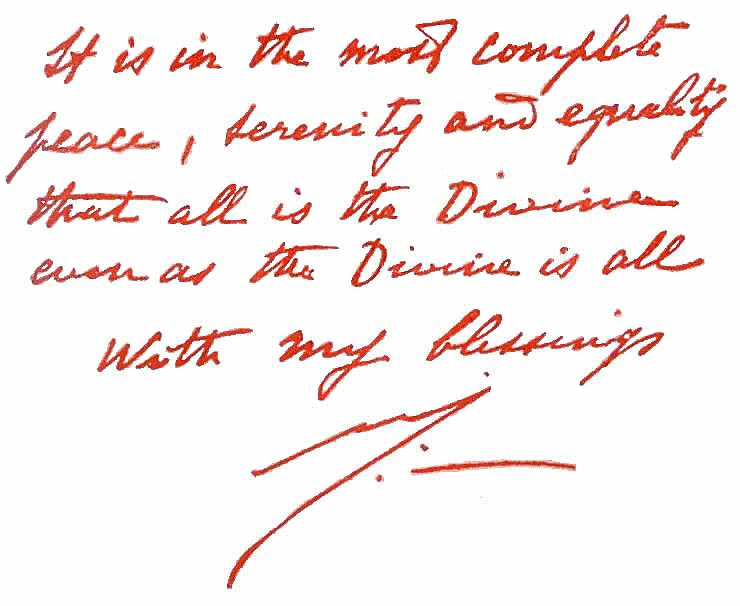 It is in the most complete
peace, serenity and equality
that all is the Divine
even as the Divine is all
With my blessings